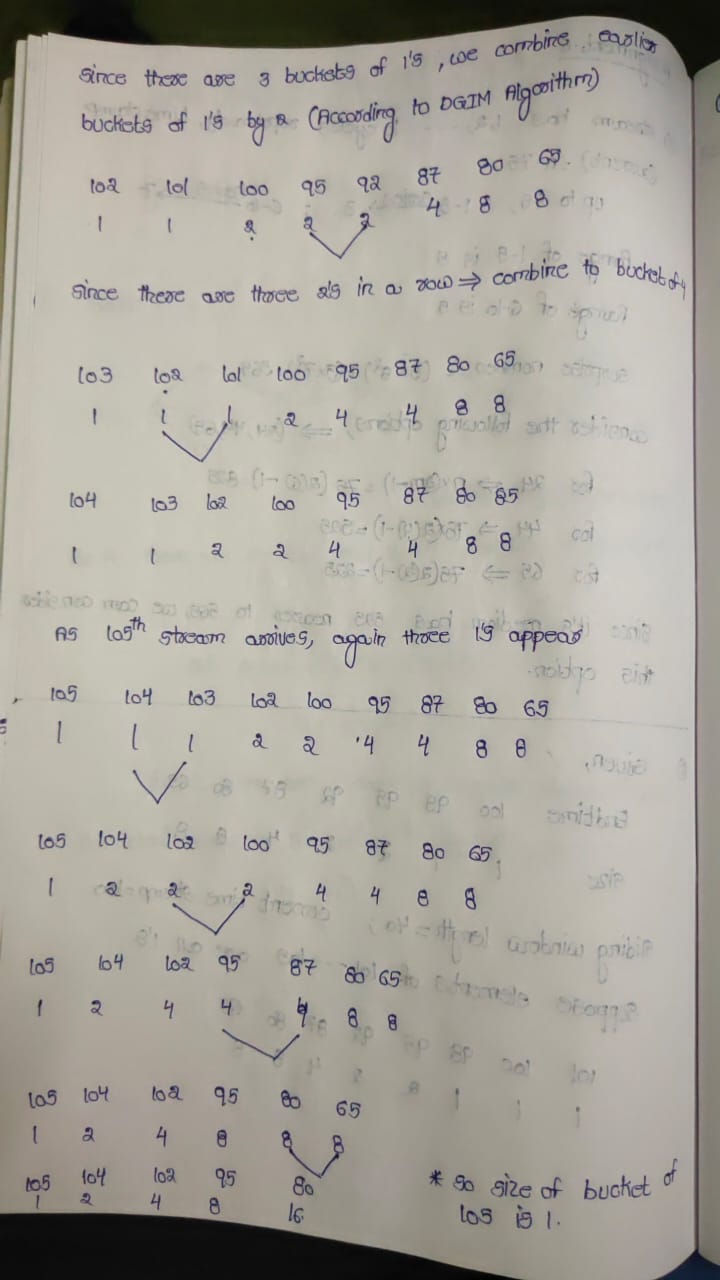 Since there are 3 buckets of 1's, we combine earlier
buckets of 1's by 2 (According to DGIM Algorithm)
102 101 100 95 92 87 80 65.
1 1 2 2 2 4 8 8
Since there are three 2's in a row ⇒ combine to bucket of 4
103 102 101 100 95 87 80 65
1 1 1 2 4 4 8 8
104 103 102 100 95 87 80 65
1 1 2 2 4 4 8 8
As 105th stream arrives, again three 1s appear
105 104 103 102 100 95 87 80 65
1 1 1 2 2 4 4 8 8
105 104 102 100 95 87 80 65
1 2 2 2 4 4 8 8
105 104 102 95 87 80 65
1 2 4 4 4 8 8
105 104 102 95 80 65
1 2 4 8 8 8
105 104 102 95 80
1 2 4 8 16
* so size of bucket of
105 is 1.